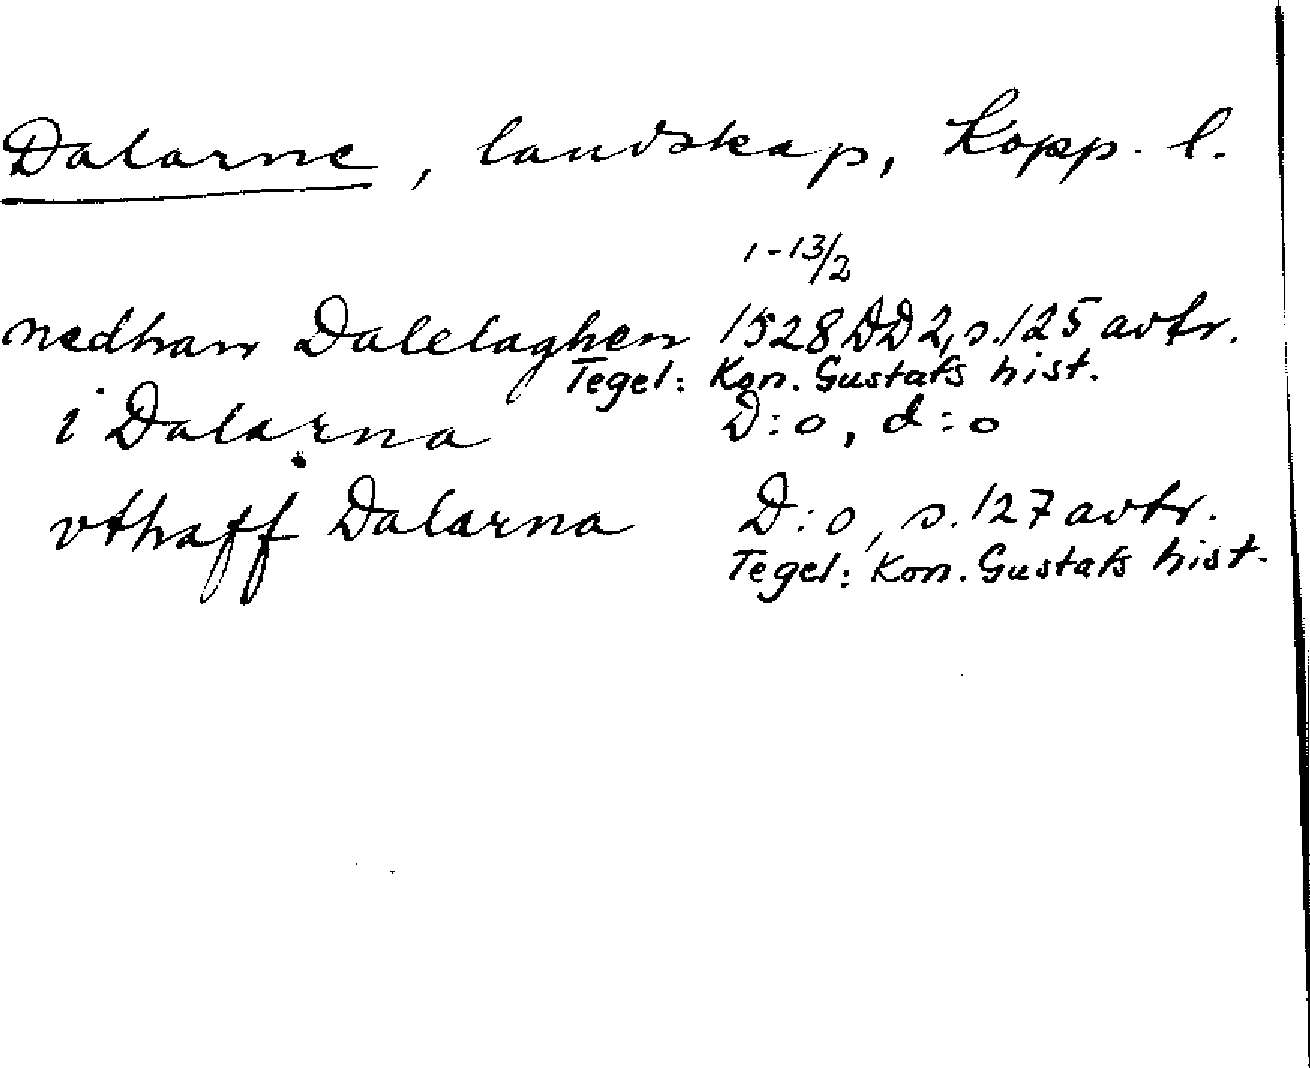 Dalarne, landskap, Kopp. l.
1-13/2
nedhan Dalelaghen 1528 DD2, s. 125 avtr.
Tegel: Kon. Gustafs hist.
i Dalarna D:o, d:o
vthaff Dalarna D:o, s. 127 avtr.
Tegel: Kon. Gustafs hist.